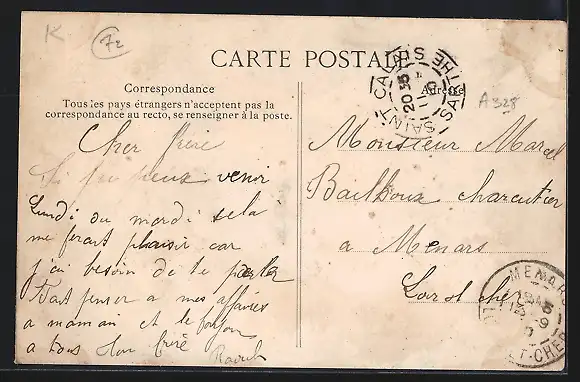 K
72
CARTE POSTALE
Correspondance
Tous les pays étrangers n'acceptent pas la
correspondance au recto, se renseigner à la poste.
Adresse
SAINT CALAIS
SARTHE
A328
Cher frère
Si tu peux venir
Lundi ou mardi sela
me ferait plaisir car
j'ai besoin de te parler
Fait penser a mes affaires
a maman et le
a tous ton frère
Raoul
Monsieur Marcel
Bailhoux charcutier
a Menars
Loir et cher
MENARS
ET-CHER